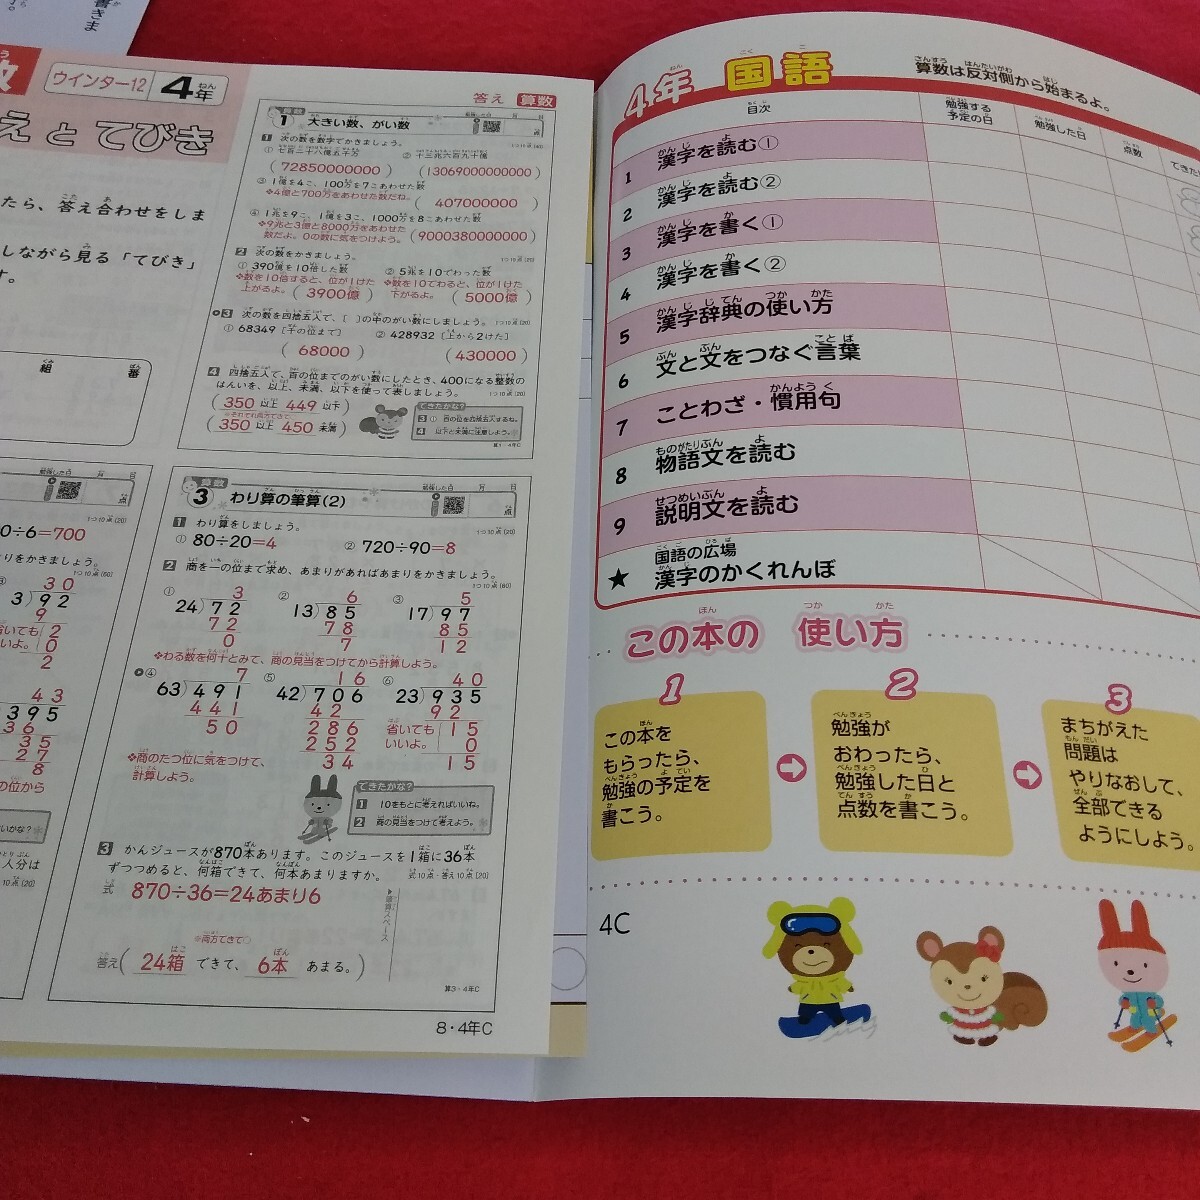 ウインター12 4年
えとてびき
たら、答え合わせをしま
しながら見る「てびき」
す。
組 番
答え 算数
算数
1 大きい数、がい数
勉強した日 月 日
点
1 次の数を数字でかきましょう。
① 七百二十八億五千万
② 十三兆六百九十億
(72850000000)
(13069000000000)
③ 1億を4こ、100万を7こあわせた数
❖4億と700万をあわせた数だね。
(407000000)
④ 1兆を9こ、1億を3こ、1000万を8こあわせた数
❖9兆と3億と8000万をあわせた
数だよ。0の数に気をつけよう。
(9000380000000)
2 次の数をかきましょう。
① 390億を10倍した数
② 5兆を10でわった数
❖数を10倍すると、位が1けた
上がるよ。
(3900億)
❖数を10でわると、位が1けた
下がるよ。
(5000億)
3 次の数を四捨五入で、[ ]の中のがい数にしましょう。
① 68349 [千の位まで]
② 428932 [上から2けた]
(68000)
(430000)
4 四捨五入で、百の位までのがい数にしたとき、400になる整数の
はんいを、以上、未満、以下を使って表しましょう。
(350 以上 449 以下)
※それぞれ両方できて○
(350 以上 450 未満)
できたかな?
3 ① 百の位を四捨五入するね。
4 以下と未満に注意しよう。
算1・4年C
勉強した日 月 日
点
0÷6=700
りをかきましょう。
30
3)92
9
2
0
2
43
395
36
35
27
8
の位から
いかな?
人分は
算数
3 わり算の筆算(2)
勉強した日 月 日
点
1 わり算をしましょう。
① 80÷20=4
② 720÷90=8
2 商を一の位まで求め、あまりがあればあまりをかきましょう。
① 3
24)72
72
0
② 6
13)85
78
7
③ 5
17)97
85
12
❖わる数を何十とみて、商の見当をつけてから計算しよう。
④ 7
63)491
441
50
⑤ 16
42)706
42
286
252
34
⑥ 40
23)935
92
15
0
15
省いても
いいよ。
❖商のたつ位に気をつけて、
計算しよう。
できたかな?
1 10をもとに考えればいいね。
2 商の見当をつけて考えよう。
3 かんジュースが870本あります。このジュースを1箱に36本
ずつつめると、何箱できて、何本あまりますか。
式10点・答え10点(20)
式 870÷36=24あまり6
計算スペース
※両方できて○
答え(24箱 できて、6本 あまる。)
算3・4年C
8・4年C
4年 国語
算数は反対側から始まるよ。
目次
勉強する
予定の日
勉強した日
点数
1 漢字を読む①
2 漢字を読む②
3 漢字を書く①
4 漢字を書く②
5 漢字辞典の使い方
6 文と文をつなぐ言葉
7 ことわざ・慣用句
8 物語文を読む
9 説明文を読む
★ 国語の広場
漢字のかくれんぼ
この本の 使い方
1
この本を
もらったら、
勉強の予定を
書こう。
2
勉強が
おわったら、
勉強した日と
点数を書こう。
3
まちがえた
問題は
やりなおして、
全部できる
ようにしよう。
4C